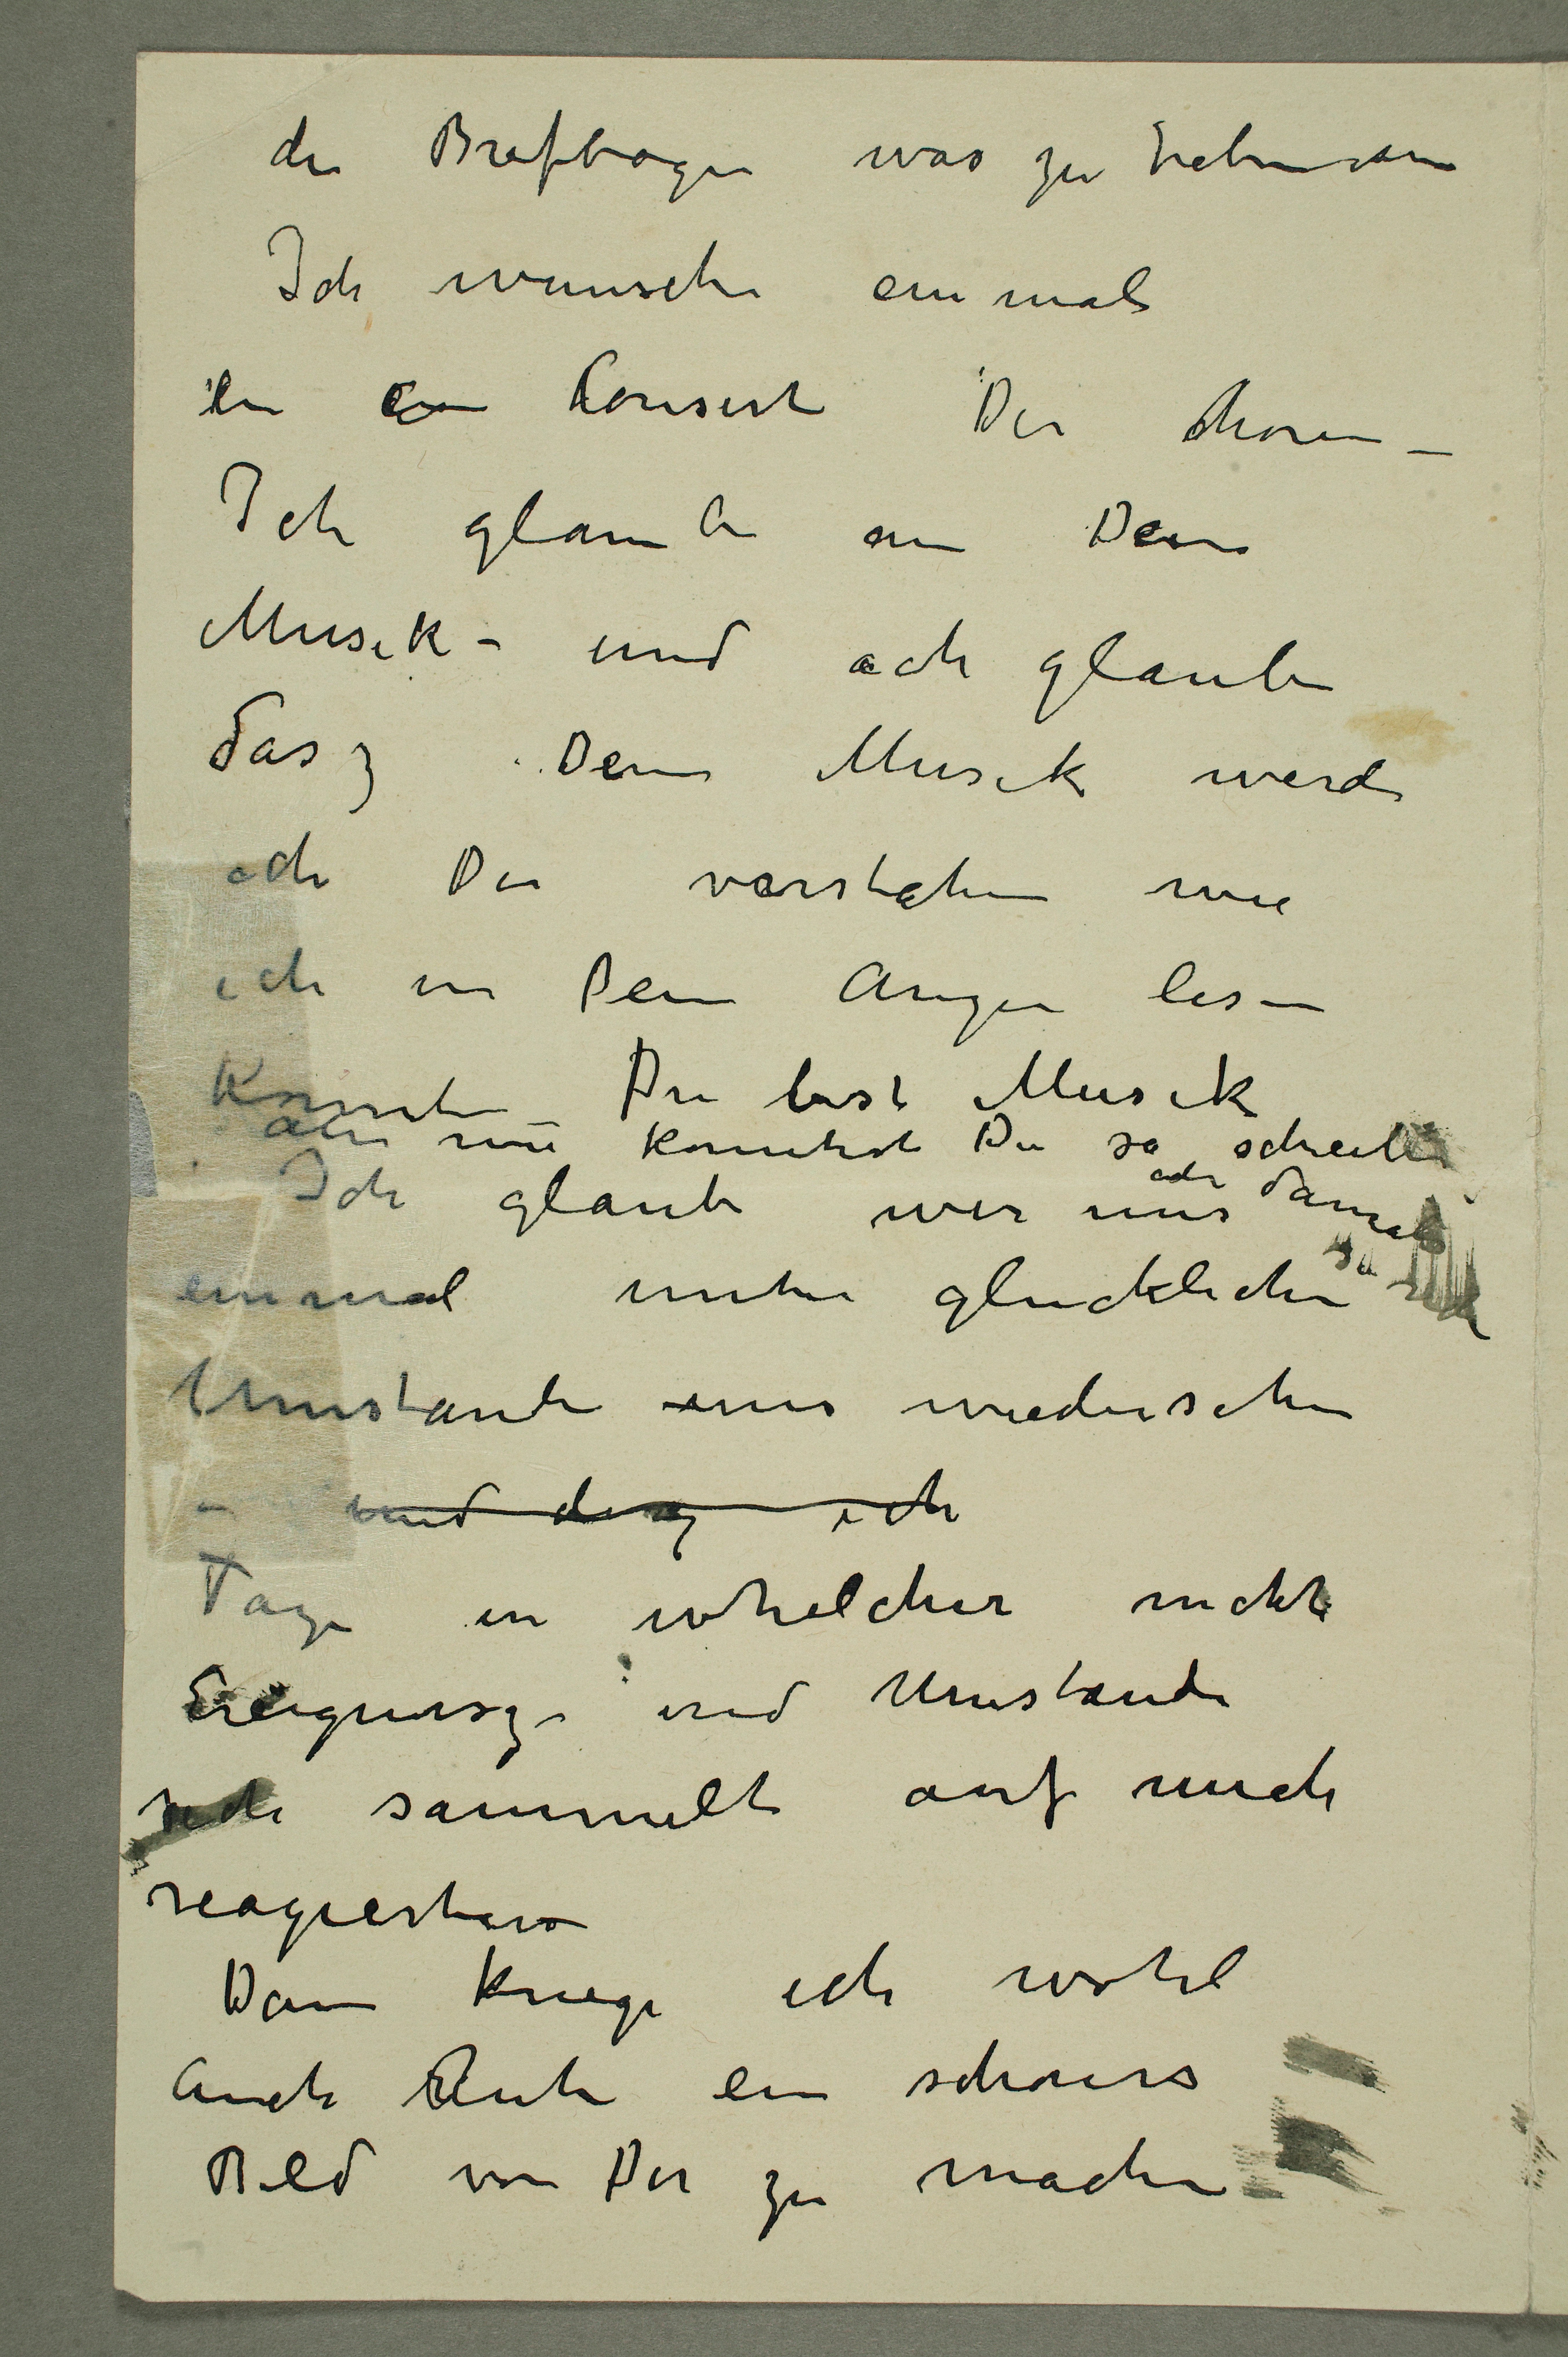 die Brifbogen was zu
Ich wünsche einmal
in ein Consert Dir horen –
Ich glaube an Dein
Musik – und ich glaube
dasz Dein Musik werde
ich Dir verstehen wie
ich in Dein Augen lesen
konnte Du bist Musik
aber wie konntest Du so schreiben
Ich glaube wir uns
ich damals
so
einmal unter gluckliche
Umstande uns wiedersehen
– und dasz ich
Tage in whelcher nicht
Ereignisze und Umstande
sich sammelt auf mich
reagierten
Dann kriege ich wohl
auch Ruhe ein schönes
Bild von Dir zu machen